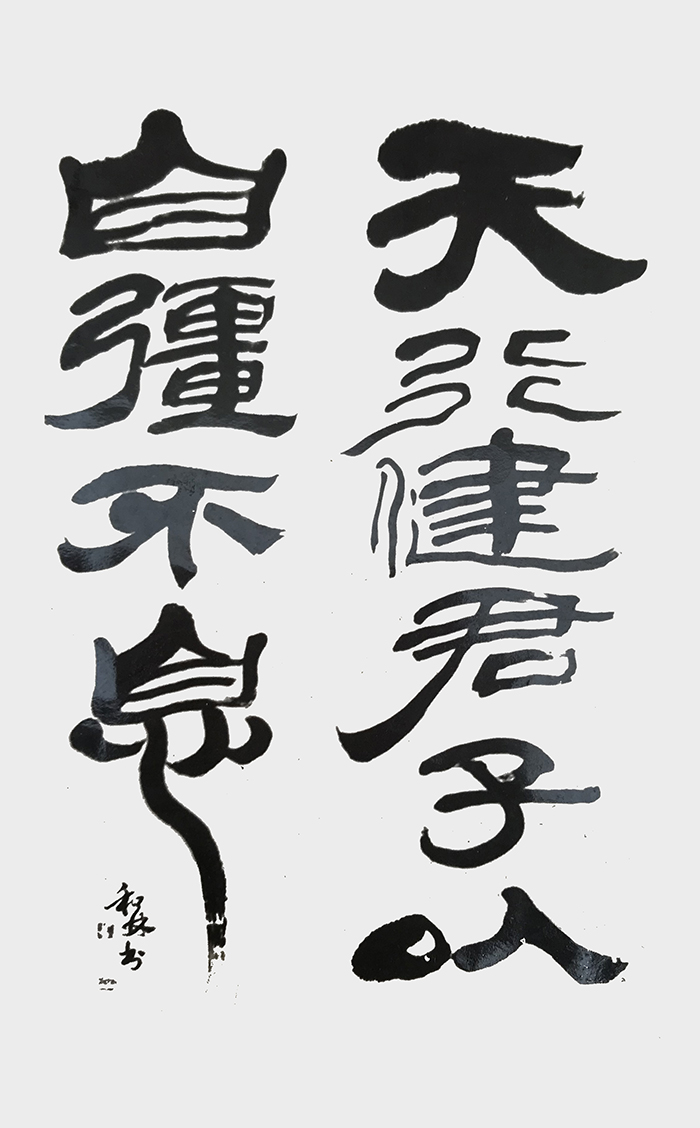 天行健君子以
自彊不息
和林书